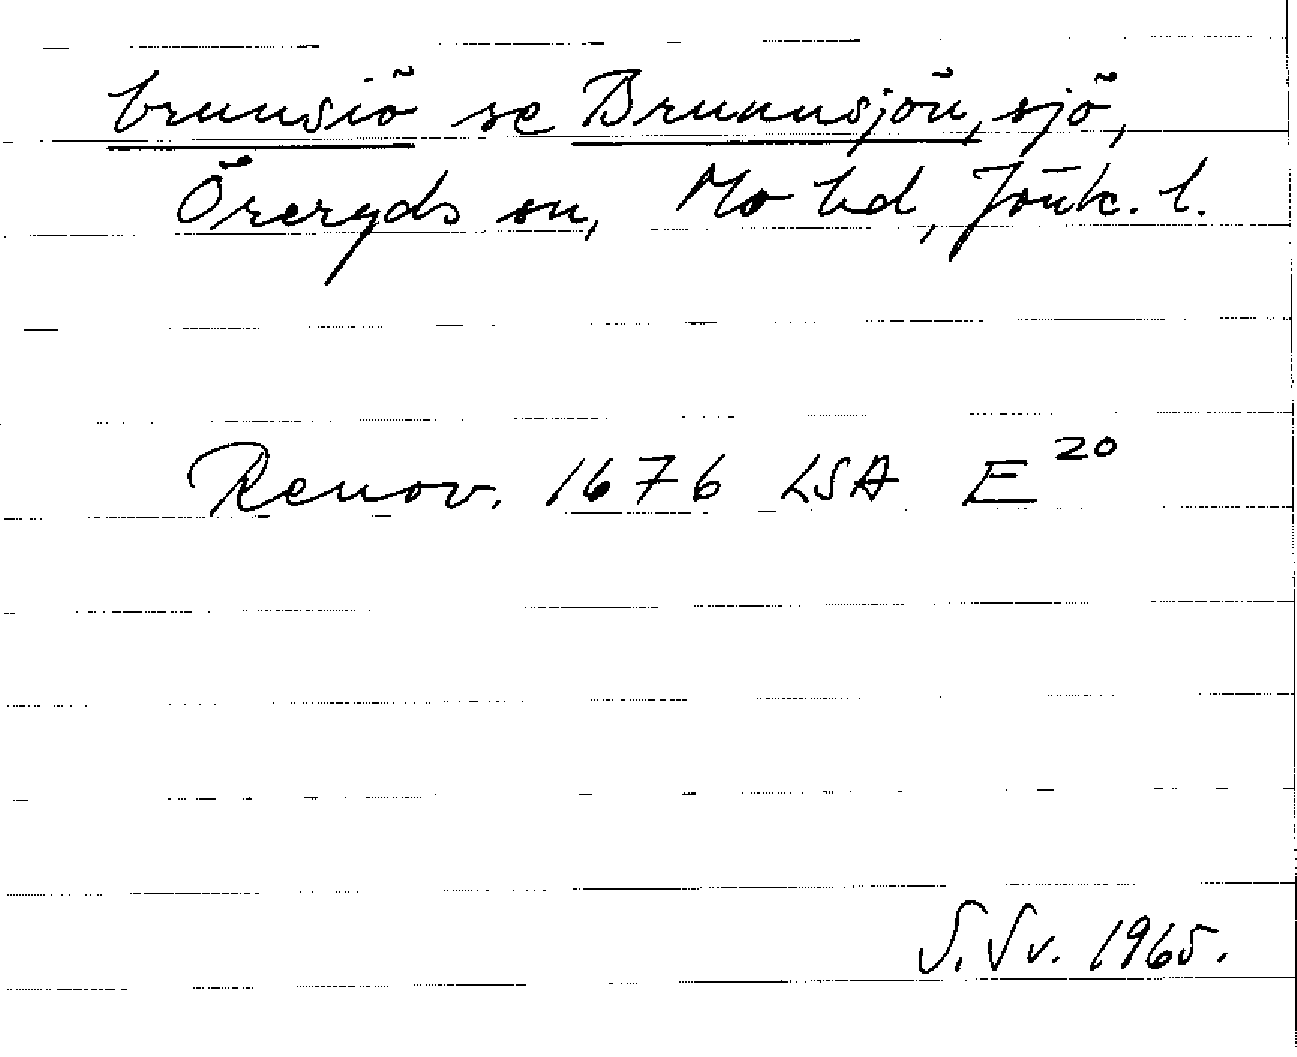 brunsiö se Brunnsjön, sjö,
Öreryds sn, Mo hd, Jönk. l.
Renov. 1676 LSA E 20
S. Sv. 1965.